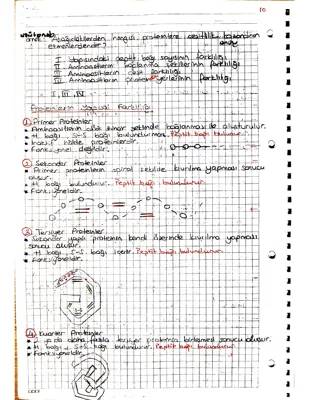 10
örnek: Aşağıdakilerden hangisi proteinlere çeşitlilik kazandıran
etmenlerdendir?
I Yapısındaki peptit bağı sayısının farklılığı
II Aminoasitlerin bağlanma şekillerinin farklılığı
III Aminoasitlerin çeşit farklılığı
IV Aminoasitlerin yerlerinin farklılığı
I, III, IV
Proteinlerin Yapısal Farklılığı
1 Primer Proteinler
Aminoasitlerin düz zincir şeklinde bağlanması ile oluşturulur.
H bağı, S-S bağı bulundurmaz. Peptit bağı bulundurur.
proteinlerdir.
değildir.
2 Sekonder Proteinler
Primer proteinlerin spiral şekilde kıvrılma yapması sonucu
oluşur.
H bağı bulundurur. Peptit bağı bulundurur.
3 Tersiyer Proteinler
Sekonder yapılı proteinin kendi üzerinde kıvrılma yapması
sonucu oluşur.
H bağı, S-S bağı içerir. Peptit bağı bulundurur.
Fonksiyoneldir.
4 Kuarter Proteinler
2 ya da daha fazla tersiyer proteinin birleşmesi sonucu oluşur.
H bağı, S-S bağı bulundurur. Peptit bağı bulundurur.
Fonksiyoneldir.